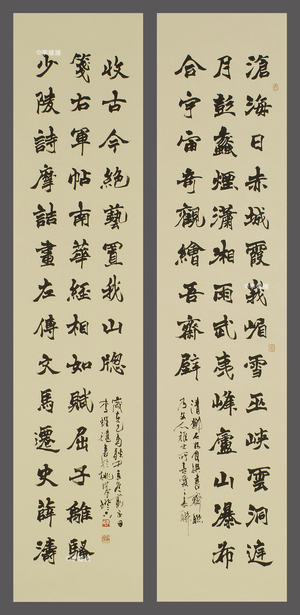 滄海日赤城霞峩嵋雪巫峽雲洞庭
月彭蠡煙瀟湘雨武夷峰廬山瀑布
合宇宙奇觀繪吾齋壁
清鄧石如
少陵詩摩詰畫左傳文馬遷史薛濤
箋右軍帖南華經相如賦屈子離騷
收古今絕藝置我山牕